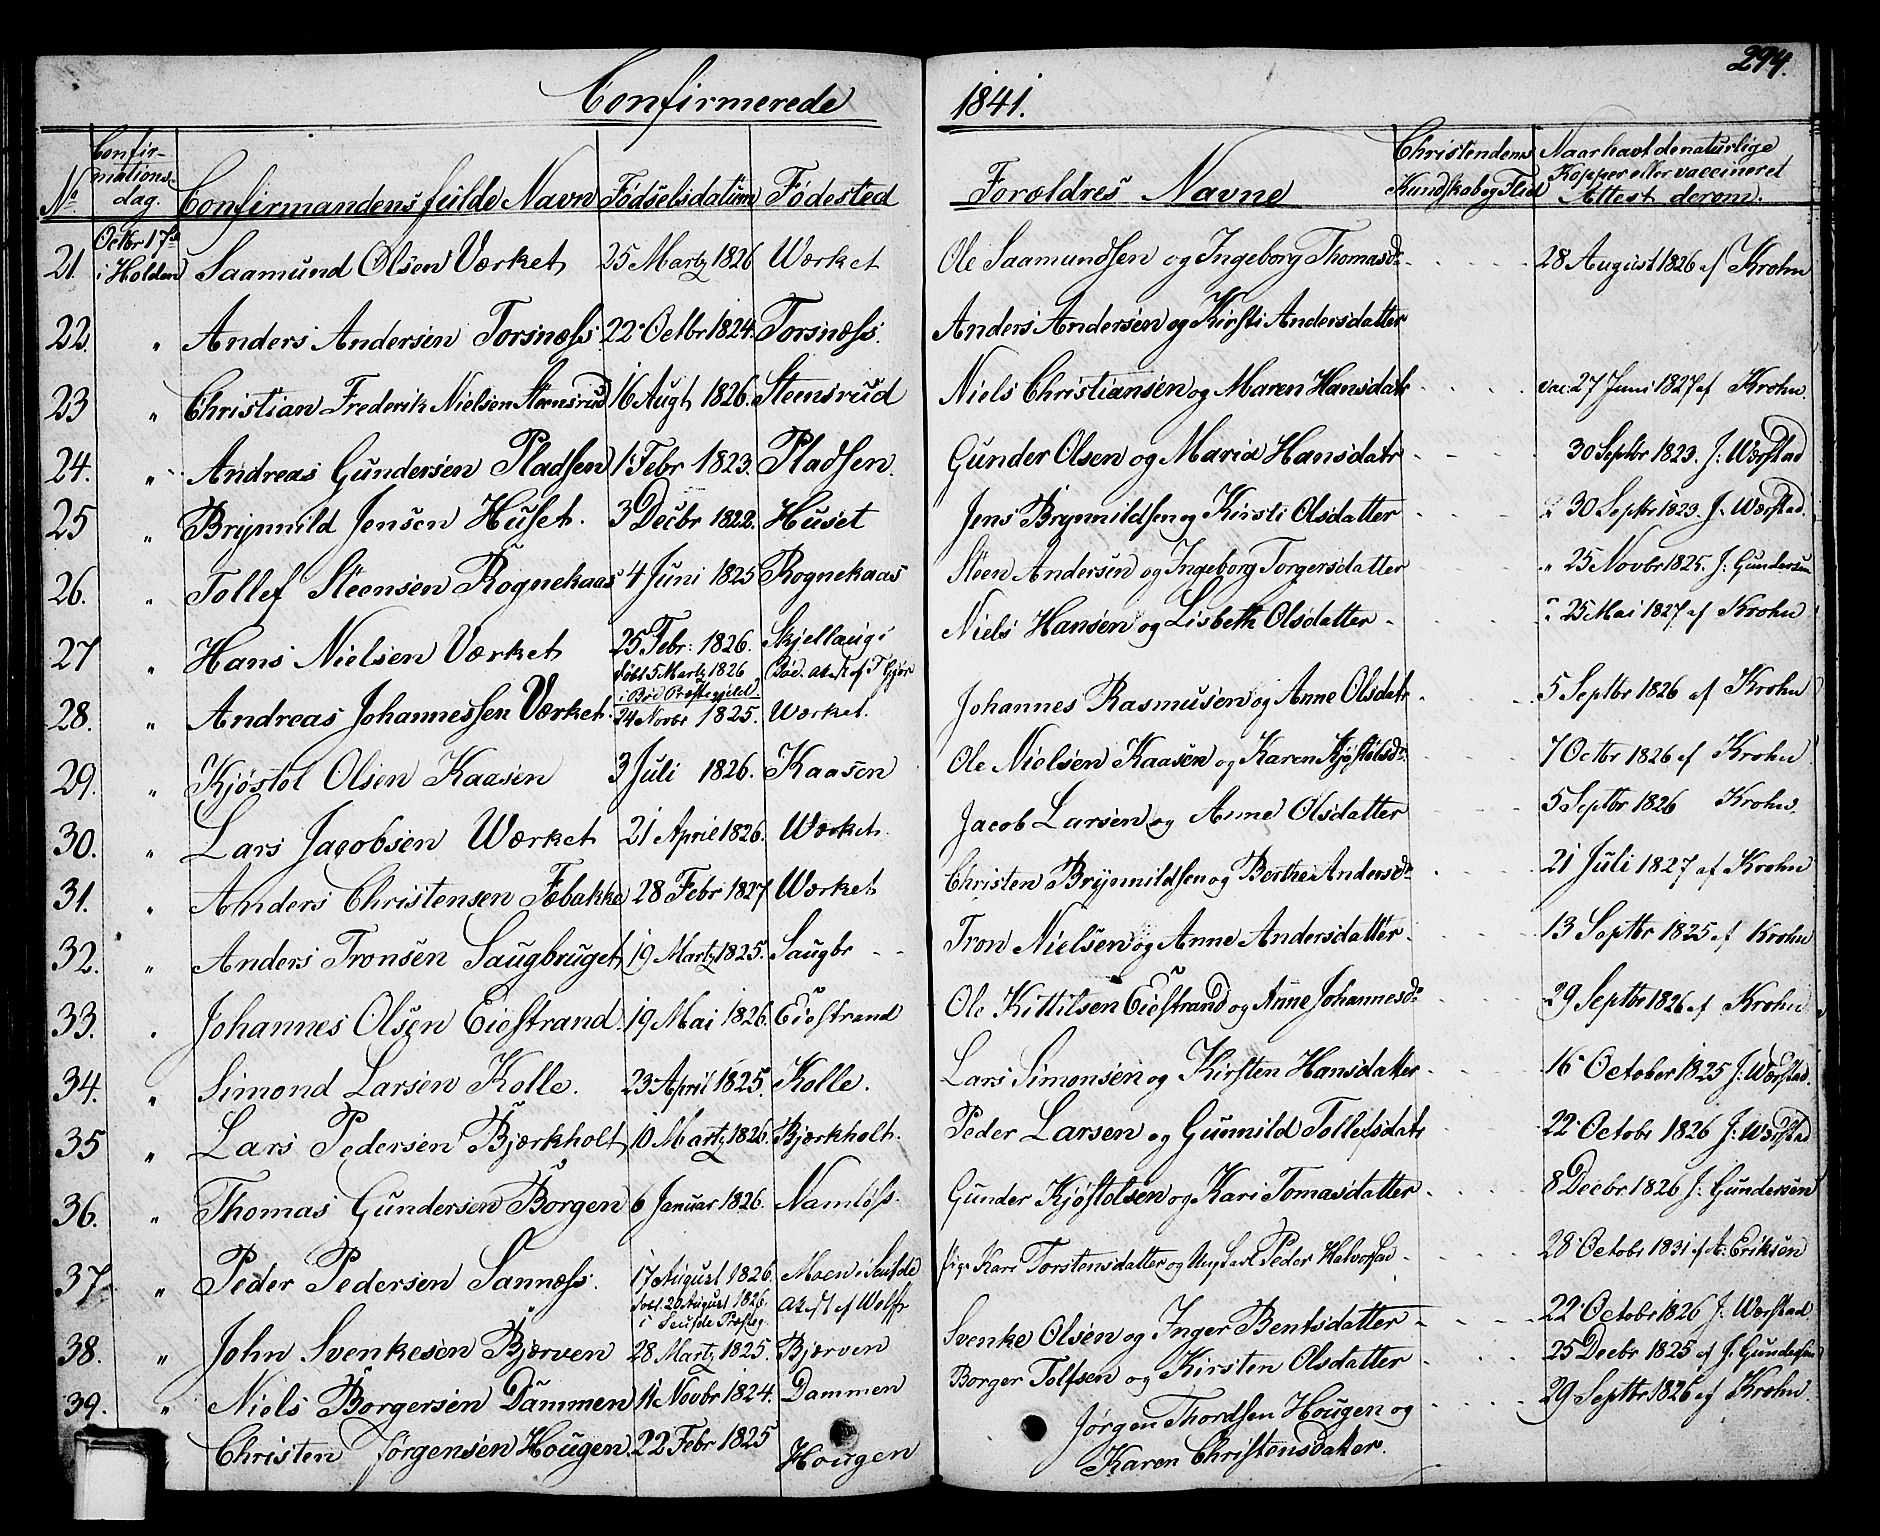 294.
Confirmerede 1841.
No Confirmationsdag. Confirmandens fulde Navn Fødselsdatum Fødested Forældres Navne Christendoms Kundskab og Flid Naar havt de naturlige Kopper eller vaccineret Attest derom.
21. Octbr 17de i Holden Saamund Olsen Værket 25 Martz 1826 Værket Ole Saamundsen og Ingeborg Thomasdr 28 August 1826 af Krohn
22. " Anders Andersen Torsnæss. 22 Octbr 1824. Torsnæss. Anders Andersen og Kirsti Andersdatter
23 " Christian Frederik Nielsen Stensrud 16 Augt 1826. Steensrud Niels Christiansen og Maren Hansdatr vac: 27 Juni 1827 af Krohn.
24. " Andreas Gundersen Pladsen 1 Febr 1823. Pladsen. Gunder Olsen og Maria Hansdatr 30 Septbr 1823. J: Værstad
25 " Brynnild Jensen Huset. 3 Decbr 1822. Huset Jens Brynnildsen og Kirsti Olsdatter 30 Septbr 1823. J. Værstad.
26. " Tollef Steensen Rognekaas 4 Juni 1825 Rognekaas Steen Andersen og Ingeborg Torgersdatter " 25 Novbr 1825. J: Gundersen
27 " Hans Nielsen Værket 25 Febr: 1826. Skjellaug i Niels Hansen og Lisbeth Olsdatter " 25 Mai 1827 af Krohn
døbt 5 Martz 1826 Bøe. at
i Bøe Præstegjeld.
28. " Andreas Johannessen Værket. 24 Novbr 1825. Værket. Johannes Rasmusen og Anne Olsdatr 5 Septbr 1826 af Krohn
29. " Kjøstol Olsen Kaasen 3 Juli 1826. Kaasen Ole Nielsen Kaasen og Karen Kjøstolsdr 7 Octbr 1826 af Krohn
30. " Lars Jacobsen Værket 21 April 1826. Værket. Jacob Larsen og Anne Olsdatter 5 Septbr 1826 Krohn.
31. " Anders Christensen Fæbakke 28 Febr 1827 Værket Christen Brynnildsen og Berthe Andersdr 21 Juli 1827 af Krohn
32. " Anders Tronsen Saugbruget 19 Martz 1825. Saugbr - - Tron Nielsen og Anne Andersdatter 13 Septbr 1825 af Krohn
33. " Johannes Olsen Eiestrand. 19 Mai 1826. Eiestrand Ole Kittilsen Eiestrand og Anne Johannesdr 29 Septbr 1826 af Krohn
34. " Simond Larsen Kolle. 23 April 1825. Kolle. Lars Simonsen og Kirsten Hansdatter 16 October 1825 J: Værstad.
35 " Lars Pedersen Bjærkholt 10 Martz 1826. Bjærkholt. Peder Larsen og Gunnild Tollefsdatr 22 Octobr 1826 J: Værstad
36. " Thomas Gundersen Borgen 6 Januar 1826. Namløss. Gunder Kjøstolsen og Kari Tomasdatter 8 Decbr 1826 J: Gundersen
37. " Peder Pedersen Sannæss. 17 August 1826. Moen i Seufde Pige Kari Torstensdatter og Ungkarl Peder Halvorsen 28 Octobr 1831 af A: Eriksen
døbt. 20 August 1826. at
i Seufde Præsteg.
38. " John Svenkesen Bjærven 28 Martz 1825. Bjærven Svenke Olsen og Inger Bentsdatter 22 October 1826 J. Værstad
39. " Niels Borgersen Dammen 11 Novbr 1824. Dammen Borger Tolfsen og Kirsten Olsdatter 25 Decbr 1825 af J. Gundersen
Christen Jørgensen Hougen. 22 Febr 1825 Hougen Jørgen Thordsen Hougen og 29 Septbr 1826 af Krohn
Karen Christensdatter.